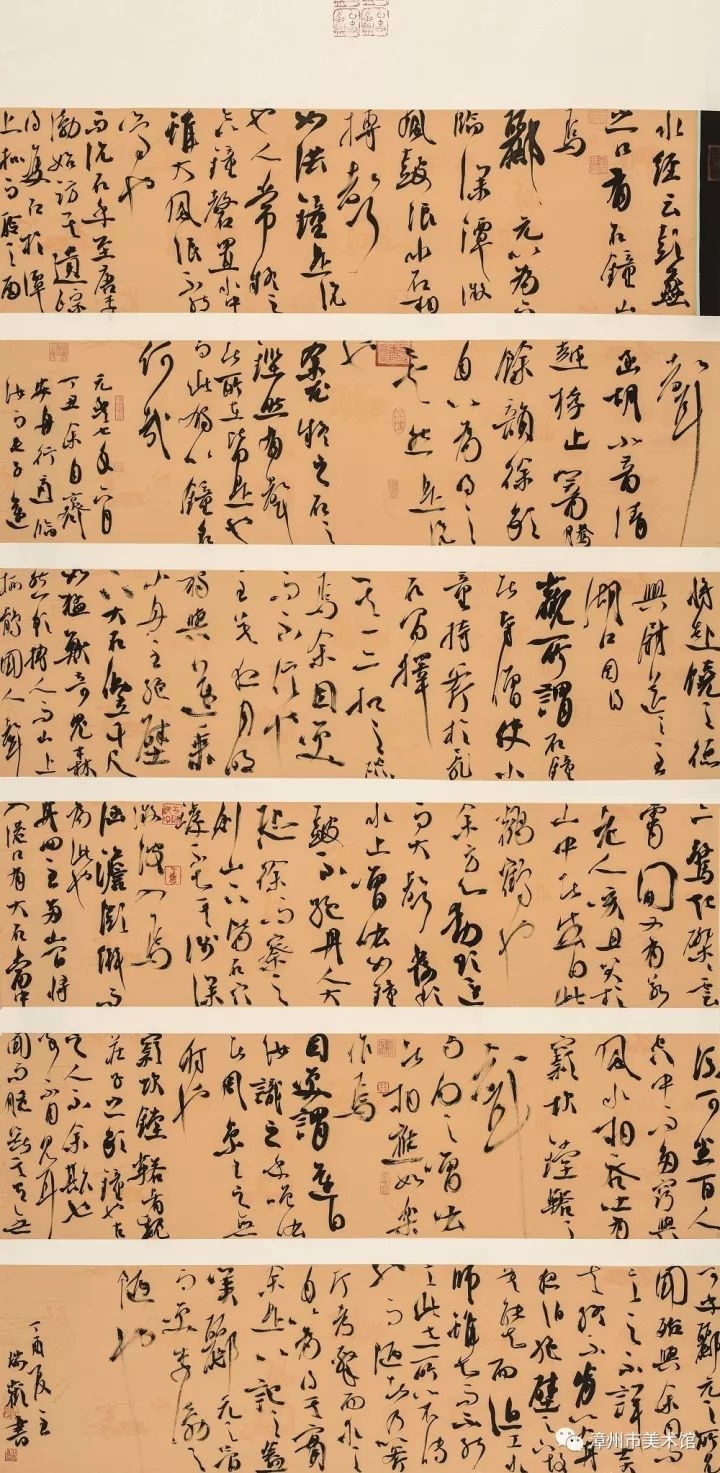 水經云彭蠡
之口有石鐘山
焉
酈元以為下
臨深潭微
風鼓浪水石相
搏聲
如洪鐘是說
也人常疑之
今以鐘磬置水中
雖大風浪不能
鳴也
而況石乎至唐李
渤始訪其遺蹤
得雙石於潭
上扣而聆之南
聲
函胡北音清
越枹止響騰
餘韻徐歇
自以為得之
矣然是說
也
余尤疑之石之
鏗然有聲
者所在皆是也
而此獨以鐘名
何哉
元豐七年六月
丁丑余自齊
安舟行適臨
汝而長子邁
將赴饒之德
興尉送之至
湖口因得
觀所謂石鐘
者寺僧使小
童持斧於亂
石間擇
其一二扣之硿
焉余固笑
而不信也
至莫夜月明
獨與邁乘
小舟至絕壁
下大石側立千尺
如猛獸奇鬼森
然欲搏人而山上
栖鶻聞人聲
亦驚起磔磔雲
霄間又有若
老人欬且笑於
山中者或曰此
鸛鶴也
余方心動欲還
而大聲發於
水上噌吰如鐘
鼓不絕舟人大
恐徐而察之
則山下皆石穴
罅不知其淺深
微波入焉
涵澹澎湃而
為此也
舟迴至兩山間將
入港口有大石當中
流可坐百人
空中而多竅與
風水相吞吐有
窾坎鏜鞳之
聲
與向之噌吰
者相應如樂
作焉
因笑謂邁曰
汝識之乎噌吰
者周景王之無
射也
窾坎鏜鞳者魏
莊子之歌鐘也古
之人不余欺也
事不目見耳
聞而臆斷其有無
可乎酈元之所見
聞殆與余同而
言之不詳士大
夫終不肯以小舟
夜泊絕壁之下故
莫能知而漁工水
師雖知而不能
言此世所以不傳
也而陋者乃以斧
斤考擊而求之
自以為得其實
余是以記之蓋
嘆酈元之簡
而笑李渤之
陋也
丁酉夏至
書
漳州市美术馆